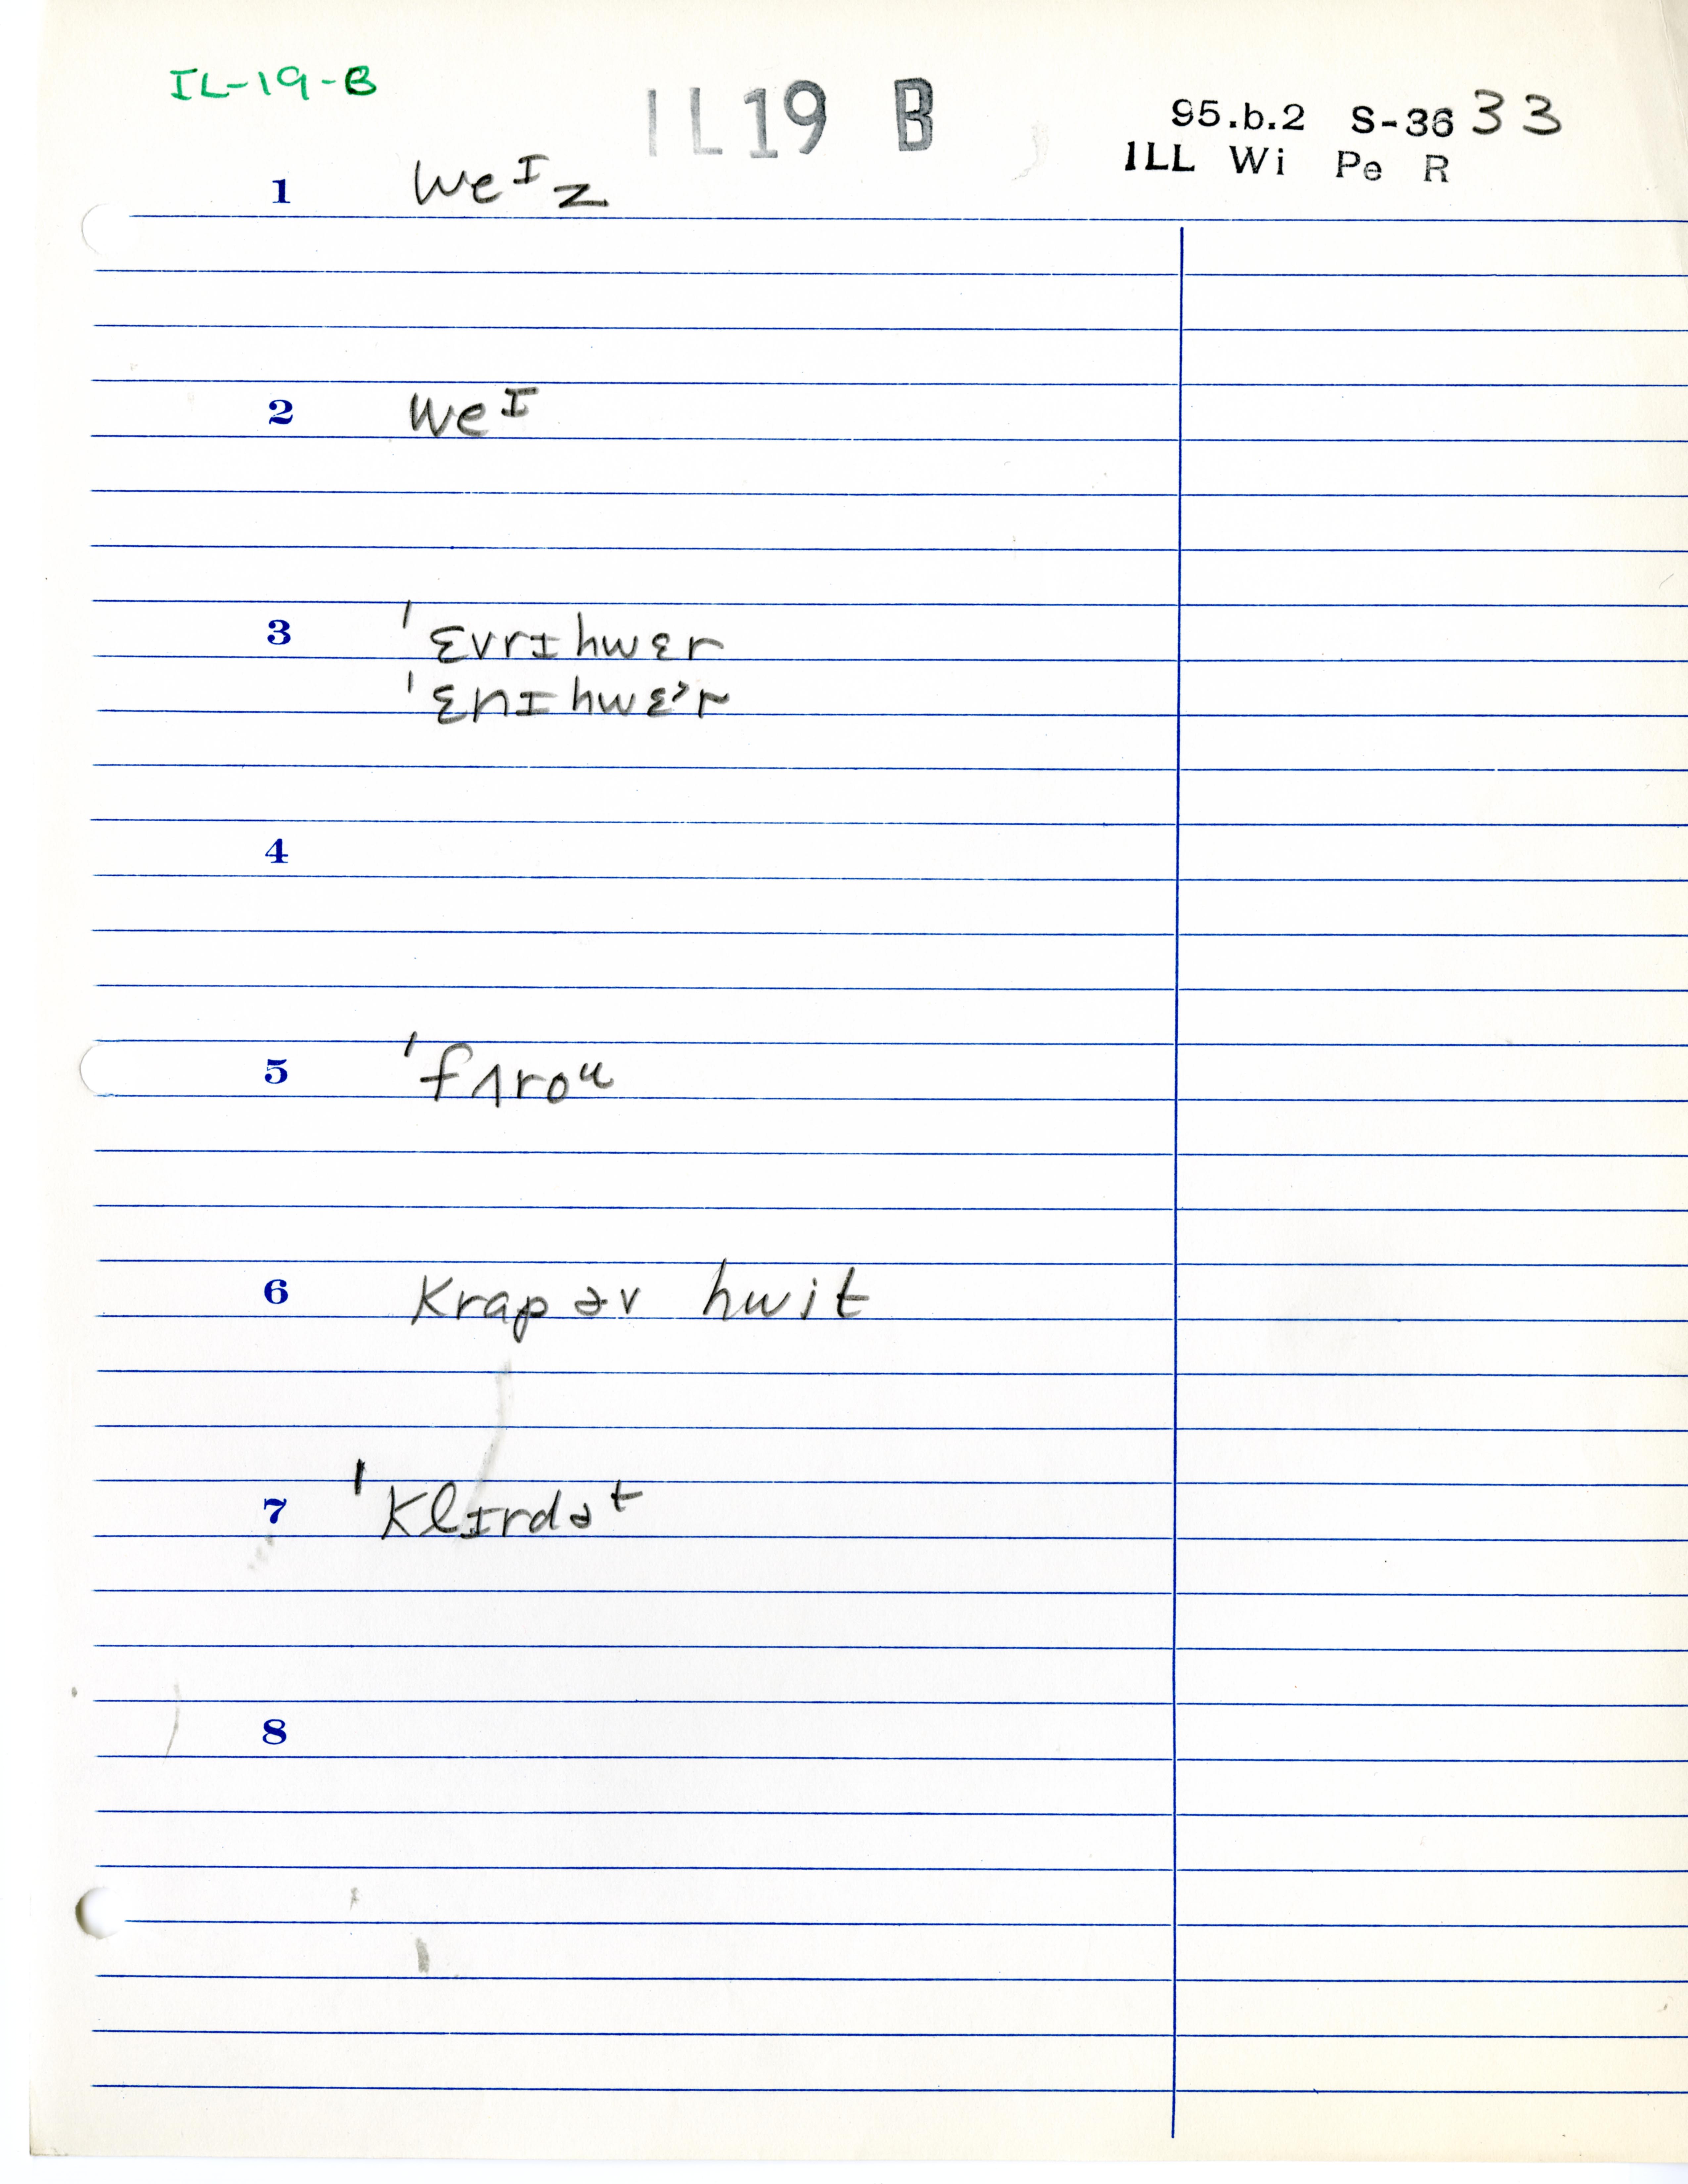 IL-19-B
IL19 B
95.b.2 S-3633
ILL Wi Pe R
1 weᴵz
2 weᴵ
3 'ɛvrɪhwɛr
'ɛnɪhwɛᵊr
4
5 'fʌroᵘ
6 Krap əv hwit
7 'Klɪrdət
8